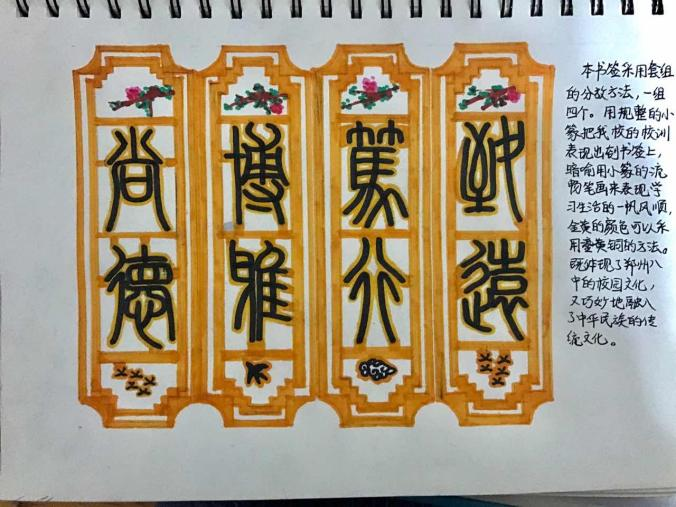 尚德
博雅
篤行
致遠
本书签采用套组
的分放方法，一组
四个。用规整的小
篆把我校的校训
表现出刻书签上，
暗喻用小篆的流
畅笔画来表现学
习生活的一帆风顺，
金黄的颜色可以采
用黄铜的方法。
既体现了郑州八
中的校园文化，
又巧妙地融入
了中华民族的传
统文化。